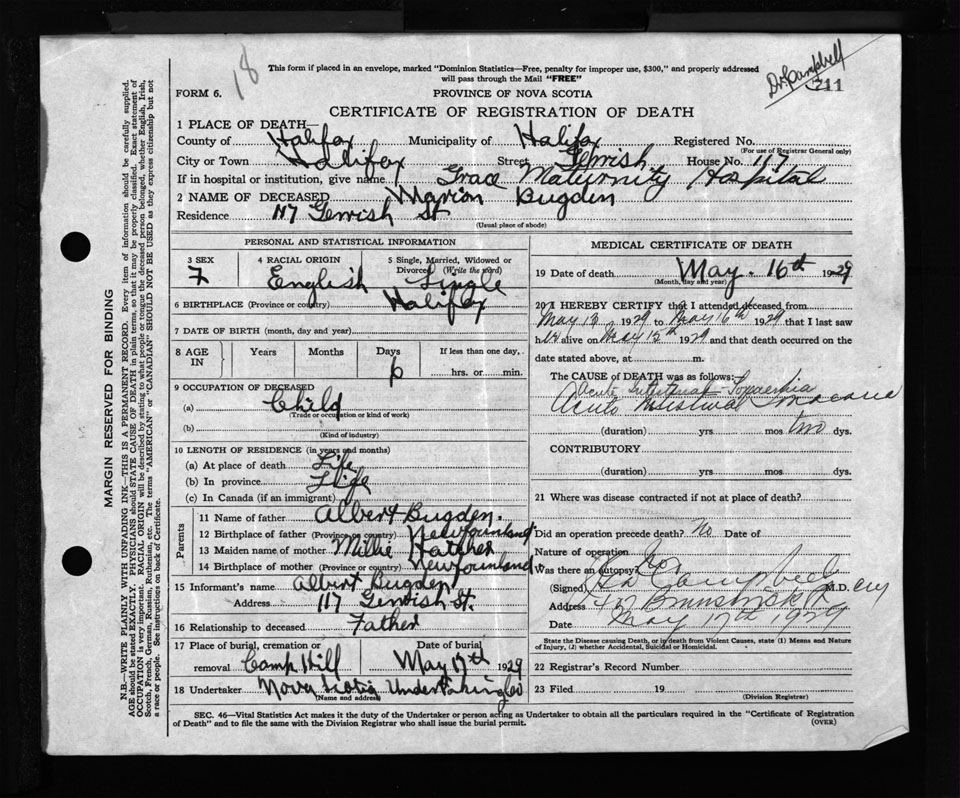 18
This form if placed in an envelope, marked "Dominion Statistics—Free, penalty for improper use, $300," and properly addressed
will pass through the Mail "FREE"
Dr. Campbell
711
FORM 6.
PROVINCE OF NOVA SCOTIA
CERTIFICATE OF REGISTRATION OF DEATH
1 PLACE OF DEATH—
County of Halifax Municipality of Halifax Registered No.
(For use of Registrar General only)
City or Town Halifax Street Gerrish House No. 117
If in hospital or institution, give name Grace Maternity Hospital
2 NAME OF DECEASED Marion Bugden
Residence 117 Gerrish St
(Usual place of abode)
PERSONAL AND STATISTICAL INFORMATION
3 SEX 4 RACIAL ORIGIN 5 Single, Married, Widowed or
Divorced (Write the word)
F English Single
6 BIRTHPLACE (Province or country) Halifax
7 DATE OF BIRTH (month, day and year)
8 AGE IN Years Months Days If less than one day,
6 hrs. or min.
9 OCCUPATION OF DECEASED
(a) Child
(Trade or occupation or kind of work)
(b)
(Kind of industry)
10 LENGTH OF RESIDENCE (in years and months)
(a) At place of death Life
(b) In province Life
(c) In Canada (if an immigrant)
Parents
11 Name of father Albert Bugden.
12 Birthplace of father (Province or country) Newfoundland
13 Maiden name of mother Millie Hatcher
14 Birthplace of mother (Province or country) Newfoundland
15 Informant's name Albert Bugden
Address 117 Gerrish St.
16 Relationship to deceased Father
17 Place of burial, cremation or Date of burial
removal Camp Hill May 17th 1929
18 Undertaker Nova Scotia Undertaking Co
(Name and address)
MEDICAL CERTIFICATE OF DEATH
19 Date of death May. 16th 1929
(Month, day and year)
20 I HEREBY CERTIFY that I attended deceased from
May 13 1929 to May 16th 1929 that I last saw
h alive on May 15th 1929 and that death occurred on the
date stated above, at m.
The CAUSE of DEATH was as follows:
Acute Intestinal
Acute Intestinal
(duration) yrs mos two dys.
CONTRIBUTORY
(duration) yrs mos dys.
21 Where was disease contracted if not at place of death?
Did an operation precede death? No Date of
Nature of operation
Was there an autopsy? No
(Signed) Campbell M.D.
Address Brunswick
Date May 17th 1929
State the Disease causing Death, or in death from Violent Causes, state (1) Means and Nature
of Injury, (2) whether Accidental, Suicidal or Homicidal.
22 Registrar's Record Number
23 Filed 19
(Division Registrar)
SEC. 46—Vital Statistics Act makes it the duty of the Undertaker or person acting as Undertaker to obtain all the particulars required in the "Certificate of Registration
of Death" and to file the same with the Division Registrar who shall issue the burial permit.
(OVER)
MARGIN RESERVED FOR BINDING
N.B.—WRITE PLAINLY WITH UNFADING INK—THIS IS A PERMANENT RECORD. Every item of information should be carefully supplied.
AGE should be stated EXACTLY. PHYSICIANS should STATE CAUSE OF DEATH in plain terms, so that it may be properly classified. Exact statement of
OCCUPATION is very important. RACIAL ORIGIN will be described by stating to what people or tongue the deceased person belonged, whether English, Irish,
Scotch, French, German, Russian, Ruthenian, etc. The terms "AMERICAN" or "CANADIAN" SHOULD NOT BE USED as they express citizenship but not
a race or people. See instructions on back of Certificate.